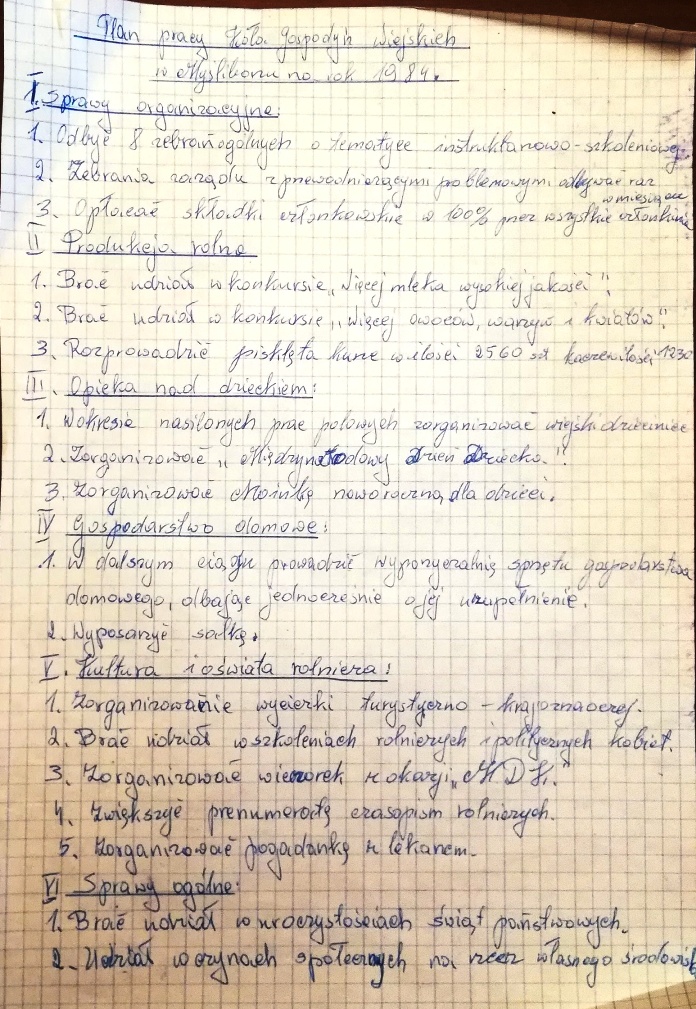 Plan pracy Koła Gospodyń Wiejskich
w Myśliborzu na rok 1984.
I. Sprawy organizacyjne:
1. Odbyć 8 zebrań ogólnych o tematyce instruktarzowo-szkoleniowej.
2. Zebrania zarządu z przewodniczącymi problemowymi odbywać raz
w miesiącu
3. Opłacać składki członkowskie w 100% przez wszystkie członkinie
II Produkcja rolna
1. Brać udział w konkursie „Więcej mleka wysokiej jakości".
2. Brać udział w konkursie „Więcej owoców, warzyw i kwiatów".
3. Rozprowadzić pisklęta kurze w ilości 2560 szt kacze w ilości 1230
III. Opieka nad dzieckiem:
1. W okresie nasilonych prac polowych zorganizować wiejski dziecniec
2. Zorganizować „Międzynarodowy Dzień Dziecka."
3. Zorganizować choinkę noworoczną dla dzieci.
IV Gospodarstwo domowe:
1. W dalszym ciągu prowadzić wypożyczalnię sprzętu gospodarstwa
domowego, dbając jednocześnie o jej uzupełnienie.
2. Wyposażyć salkę.
V. Kultura i oświata rolnicza:
1. Zorganizowanie wycieczki turystyczno - krajoznawczej.
2. Brać udział w szkoleniach rolniczych i politycznych kobiet.
3. Zorganizować wieczorek z okazji „M D K."
4. Zwiększyć prenumeratę czasopism rolniczych.
5. Zorganizować pogadankę z lekarzem.
VI Sprawy ogólne:
1. Brać udział w uroczystościach świąt państwowych.
2. Udział w czynach społecznych na rzecz własnego środowisk